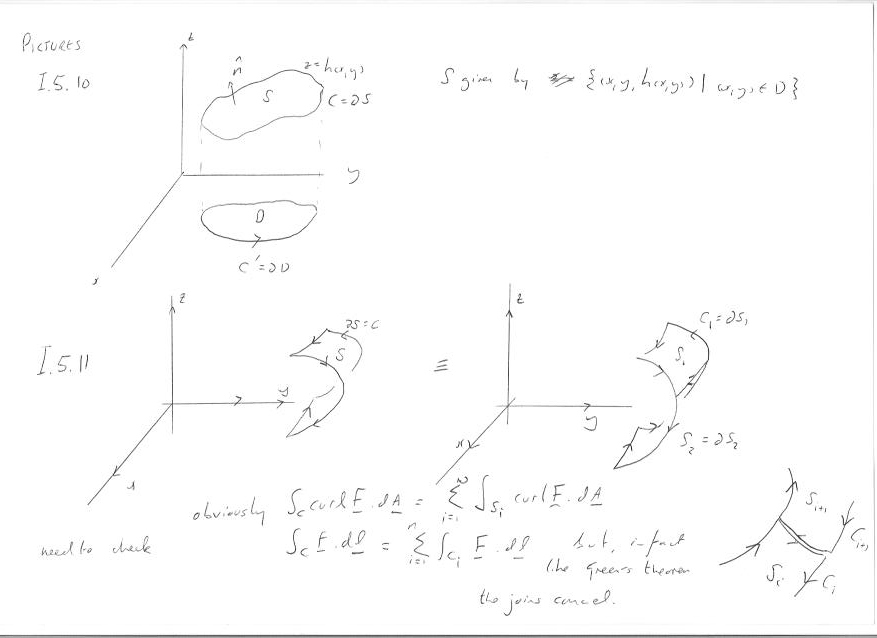 PICTURES
I.5.10
z
n̂
z=h(x,y)
S
C=∂S
y
D
C'=∂D
x
S given by {(x,y,h(x,y)) | (x,y) ∈ D}
I.5.11
z
∂S=C
S
y
x
≡
z
C₁=∂S₁
S₁
y
x
S₂=∂S₂
obviously ∫_C curl F.dA = Σ_{i=1}^{n} ∫_{S_i} curl F.dA
need to check ∫_C F.dl = Σ_{i=1}^{n} ∫_{C_i} F.dl but, in fact
like Green's theorem
the joins cancel.
S_{i+1}
C_{i+1}
S_i
C_i